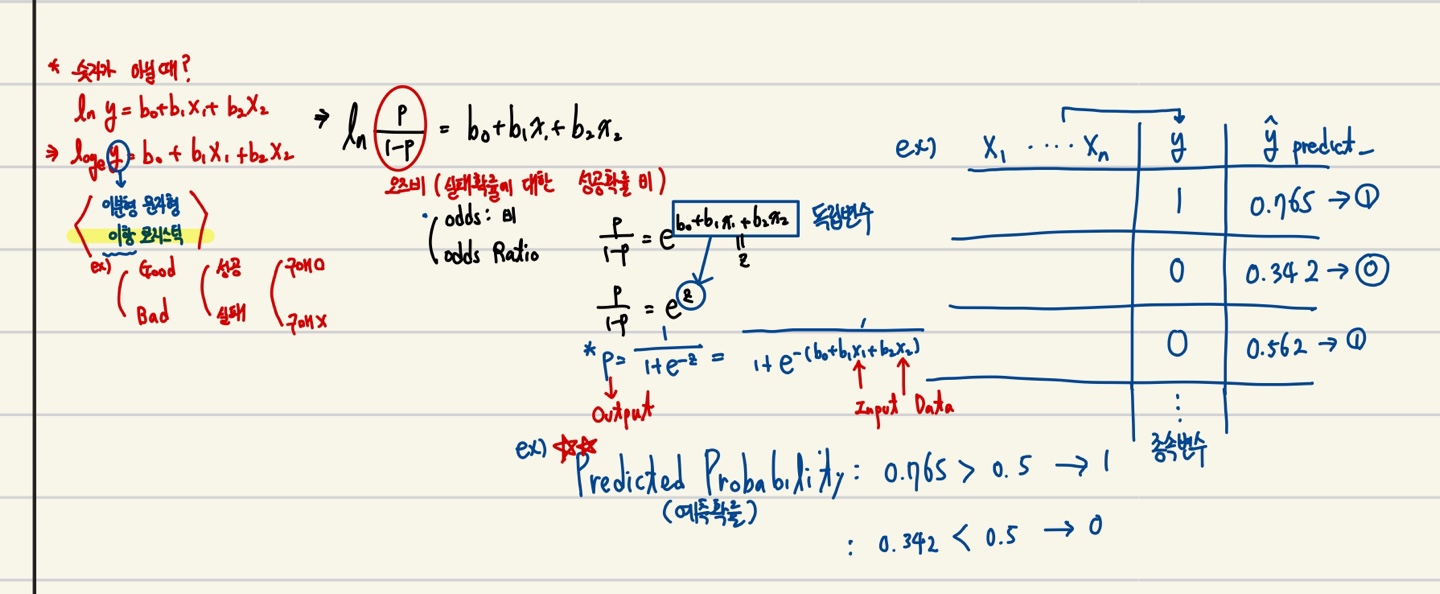 * 숫자가 아닐 때?
ln y = b₀+b₁x₁+ b₂x₂
⇒ logₑ y = b₀ + b₁x₁ + b₂x₂
이분형 문자형
이항 로지스틱
ex) Good 성공 구매O
Bad 실패 구매X
⇒ ln p/(1-p) = b₀+b₁x₁+b₂x₂
오즈비 (실패확률에 대한 성공확률 비)
odds : 비
odds Ratio
p/(1-p) = e^(b₀+b₁x₁+b₂x₂) 독립변수
= z
p/(1-p) = e^z
* p = 1/(1+e^-z) = 1/(1+e^-(b₀+b₁x₁+b₂x₂))
Output Input Data
ex) ☆☆
Predicted Probability : 0.765 > 0.5 → 1
(예측확률)
: 0.342 < 0.5 → 0
ex) x₁ ···· xₙ y ŷ predict
1 0.765 → ①
0 0.342 → ⓪
0 0.562 → ①
⋮
종속변수